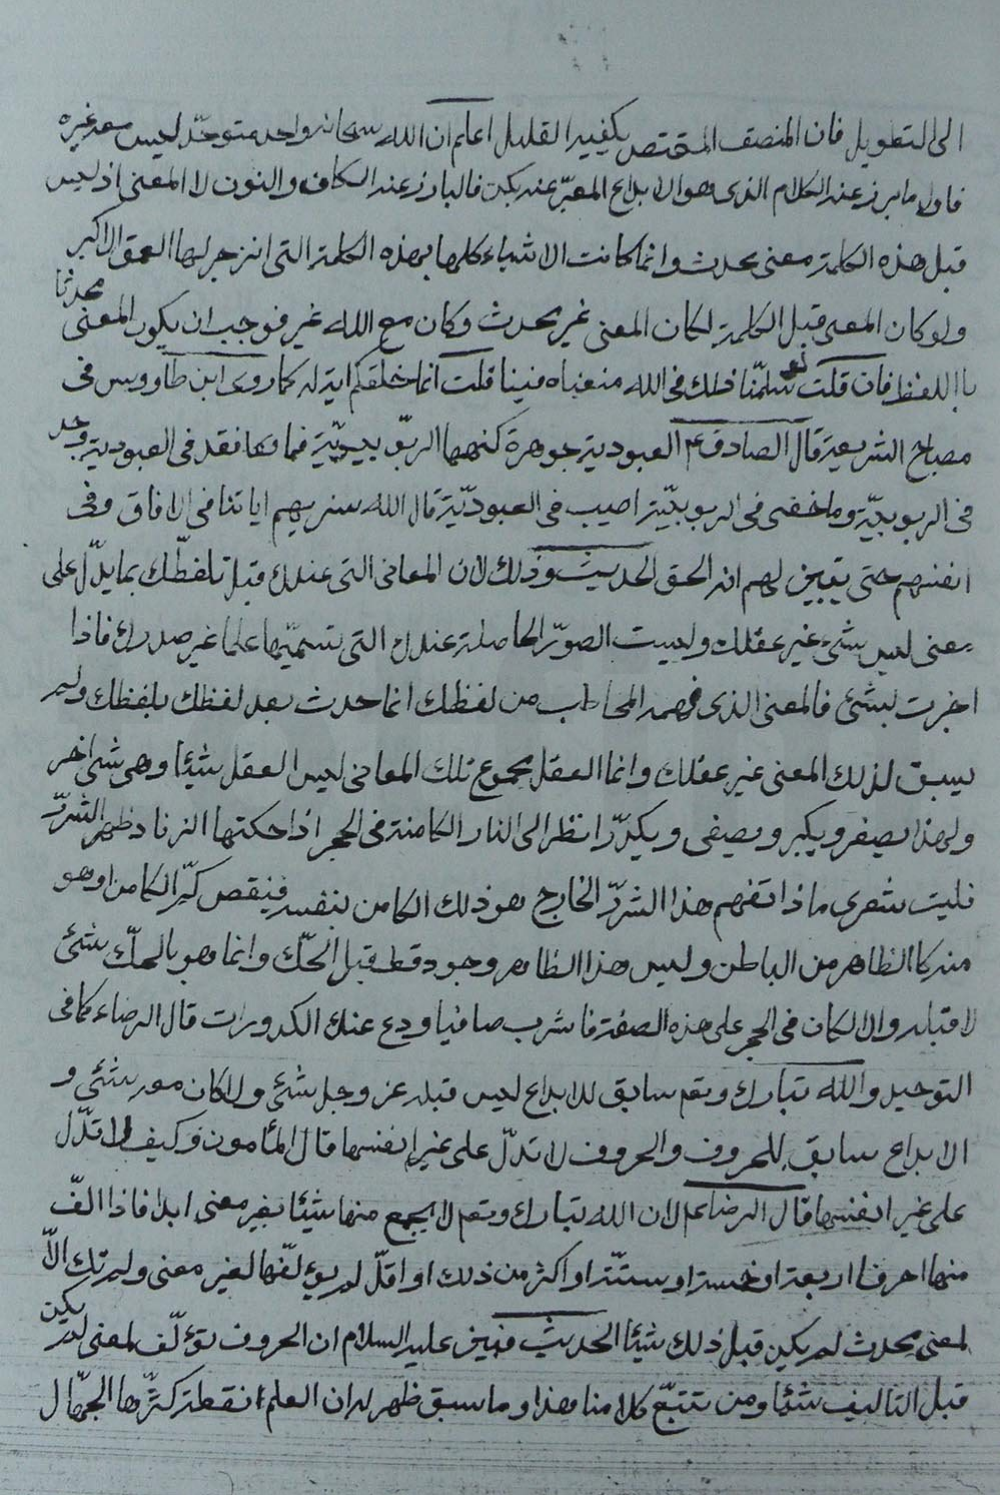 الى التطويل فان المنصف المقتصر يكفيه القليل اعلم ان الله سبحانه واحد متوحّد ليس معه غيره
فاول ما برز عنه الكلام الذى هو الابداع المعبّر عنه بكن فالبارز عنه الكاف والنون لا المعنى اذ ليس
قبل هذه الكلمة معنى يحدث وانما كانت الاشياء كلها بهذه الكلمة التى انزجر لها العمق الاكبر
ولو كان المعنى قبل الكلمة لكان المعنى غير محدث وكان مع الله غير فوجب ان يكون المعنى محدثا
باللفظ فان قلت لو سلمّنا ذلك فى الله منعناه فينا قلت انما خلقكم اية له كما روى ابن طاووس فى
مصباح الشريعة قال الصادق ع العبودية جوهرة كنهها الربوبيّة فما فقد فى العبودية وجد
فى الربوبيّة وما خفى فى الربوبيّة اصيب فى العبوديّة قال الله سنريهم اياتنا فى الافاق وفى
انفسهم حتى يتبين لهم انه الحق الحديث وذلك لان المعانى التى عندك قبل تلفظّك بما يدلّ على
معنى ليس شىء غير عقلك وليست الصوّر الحاصلة عندك التى تسميّها علما غير صدرك فاذا
اخبرت بشئ فالمعنى الذى فهمه المخاطب من لفظك انما حدث بعد لفظك بلفظك ولم
يسبق لذلك المعنى غير عقلك وانما العقل مجموع تلك المعانى ليس العقل شيئا وهى شئ اخر
ولهذا يصغر ويكبر ويصفى ويكدّر انظر الى النار الكامنة فى الحجر اذا حكتها الزناد ظهر الشرّر
فليت شعرى ماذا تفهم هذا الشرّر الخارج هو ذلك الكامن بنفسه فينقص كبّر الكامن او هو
منه كا الظاهر من الباطن وليس هذا الظاهر وجود قط قبل الحّك وانما هو بالحكّ شئ
لا قبله والا لكان فى الحجر على هذه الصفة فاشرب صافيا ودع عنك الكدورات قال الرضاء كما فى
التوحيد والله تبارك وتعم سابق للابداع ليس قبله عز وجل شئ ولا كان معه شئ و
الابداع سابق للحروف والحروف لا تدّل على غير انفسها قال المأمون وكيف لا تدّل
على غير انفسها قال الرضا ع لان الله تبارك وتعم لا يجمع منها شيئا بغير معنى ابدا فاذا الّف
منها احرفا اربعة او خمسة او ستّة او اكثر من ذلك او اقلّ لم يؤلّفها لغير معنى ولم تك الّا
لمعنى محدث لم يكن قبل ذلك شيئا الحديث فبيّن عليه السلام ان الحروف تؤلّف لمعنى لم يكن
قبل التاليف شيئا ومن تتبّع كلامنا هذا وما سبق ظهر له ان العلم نقطة كثّرها الجهّال